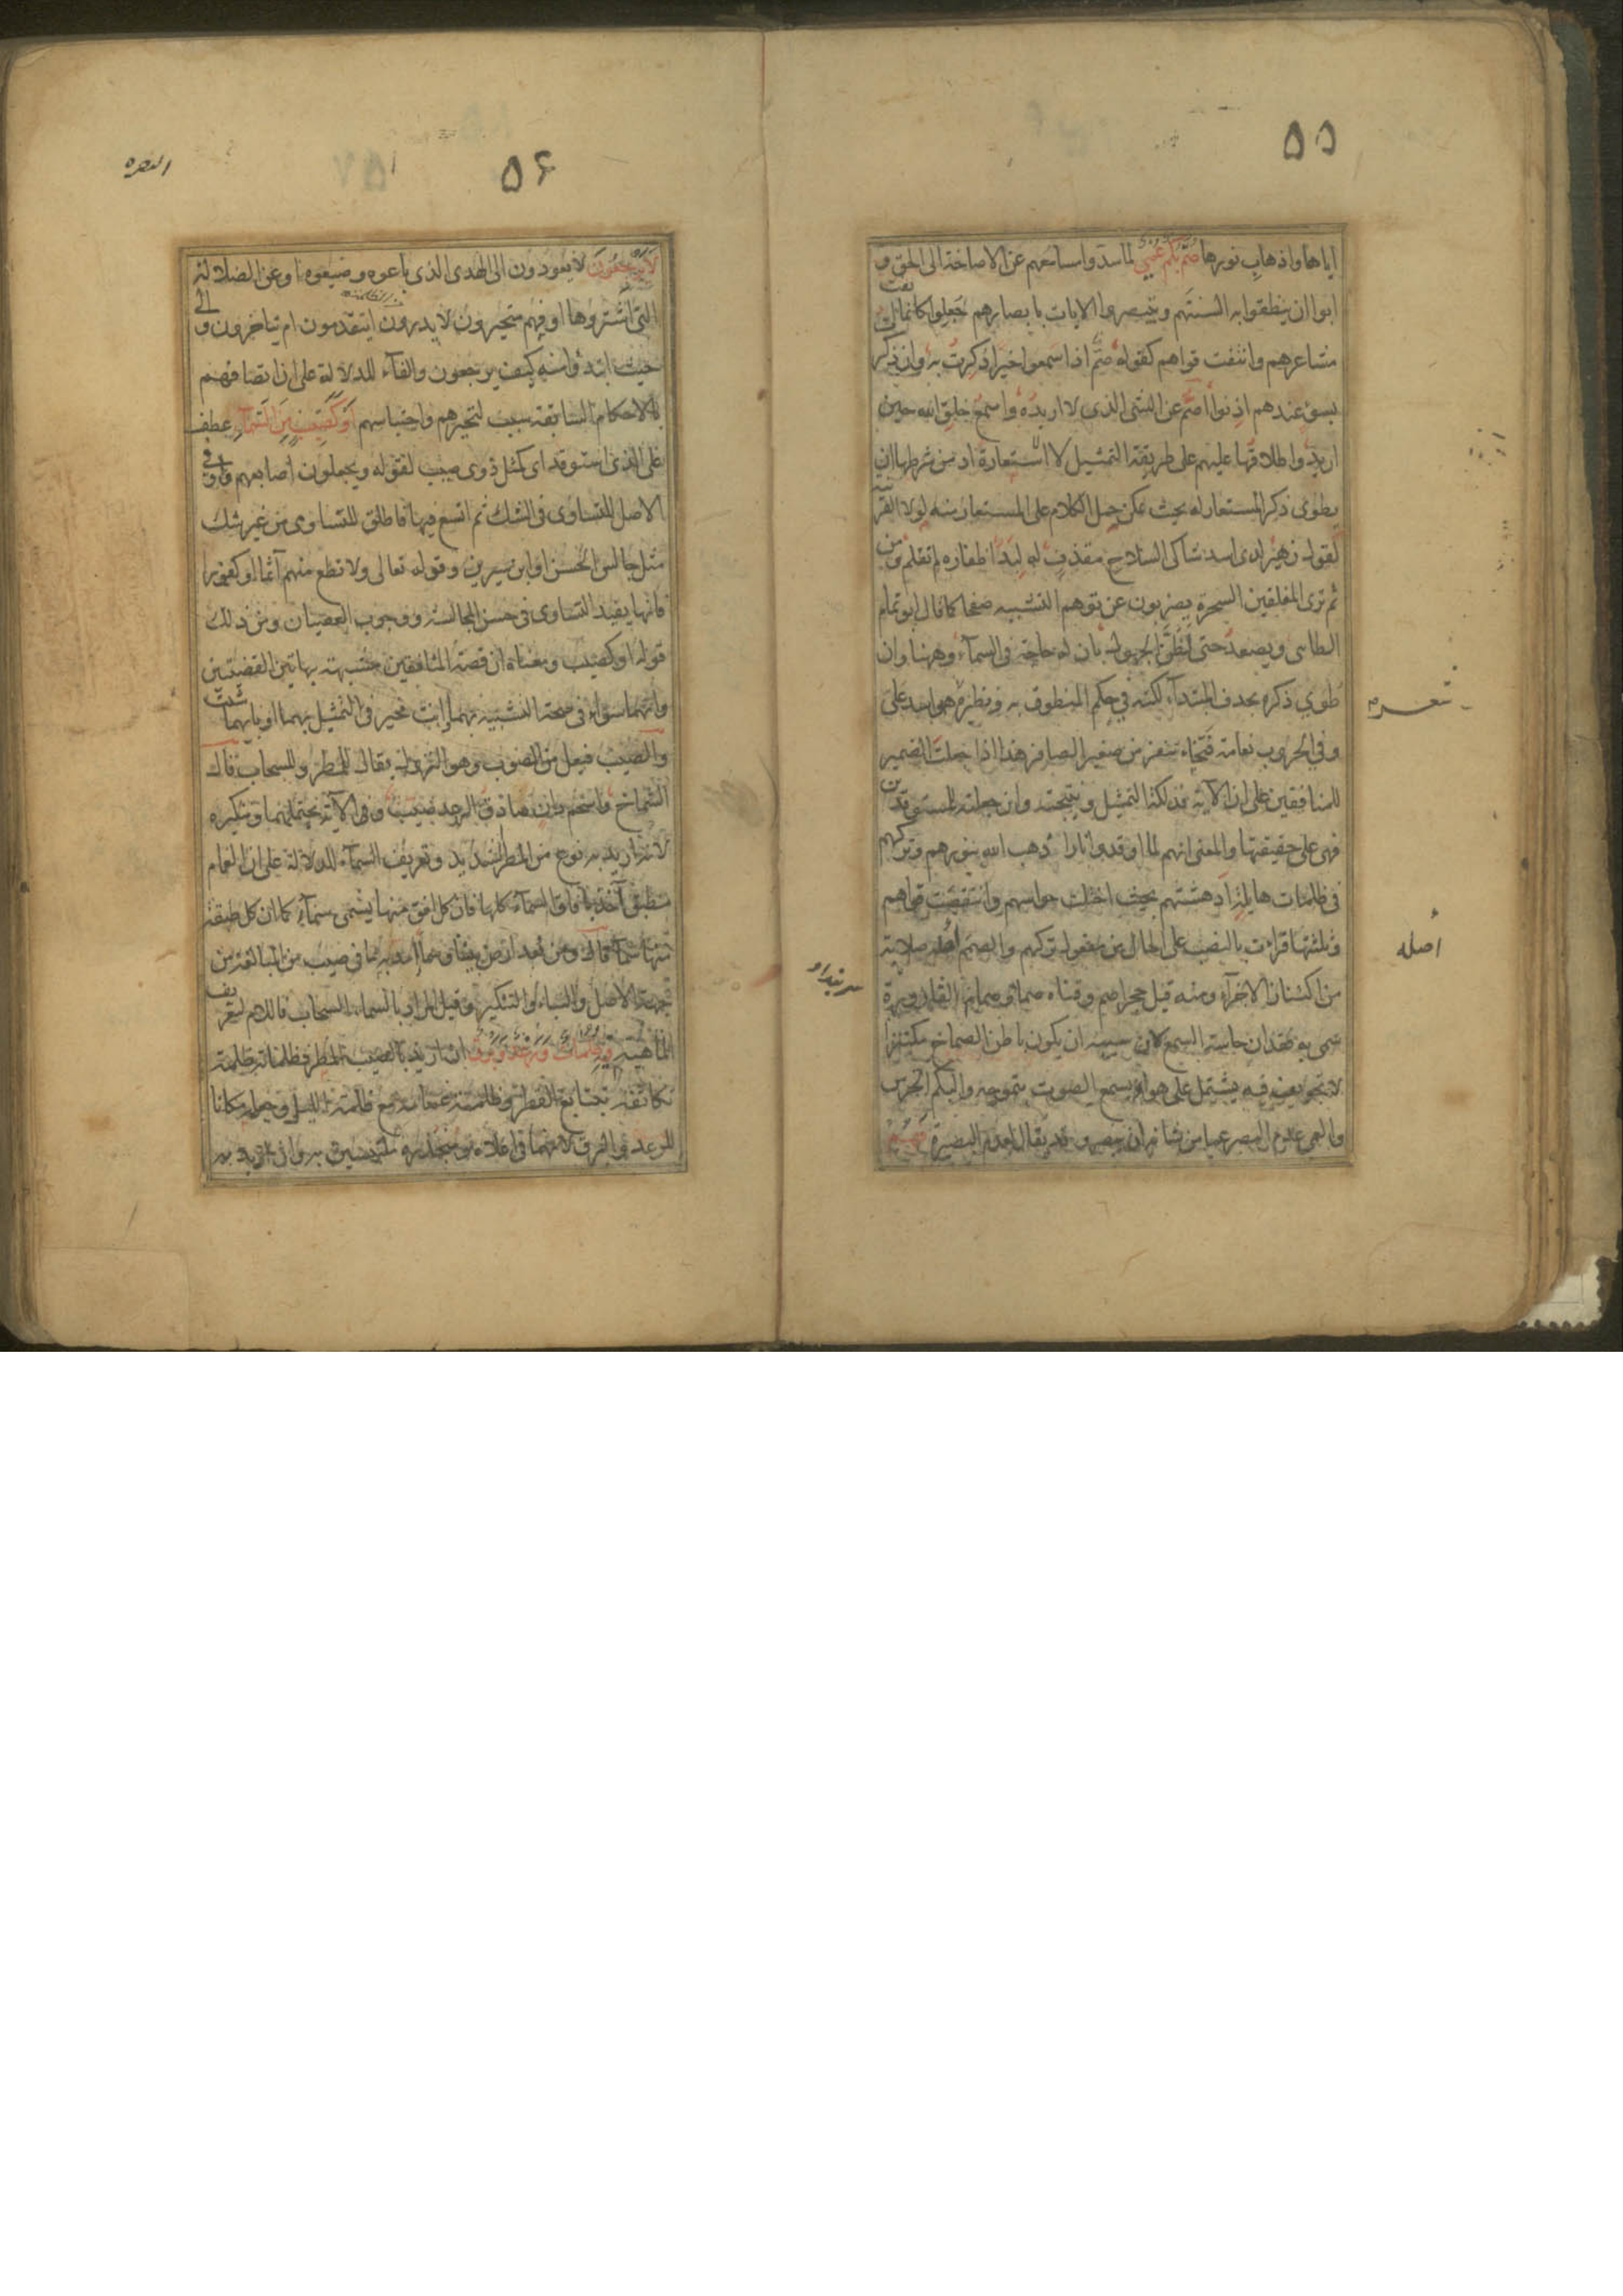 ٥٥
اياها واذهاب نورها صم بكم عمي لما سدوا مسامعهم عن الاصاخة الى الحق و
ابوا ان ينطقوا به السنتهم ويتبصروا الايات بابصارهم جعلوا كانما ايفت
مشاعرهم وانتفت قواهم كقوله صم اذا سمعوا خيرا ذكرت به وان ذكرت
بسوء عندهم اذنوا اصم عن الشئ الذى لا اريده واسمع خلق الله حين
اريد واطلاقها عليهم على طريقة التمثيل لا الاستعارة اذ من شرطها ان
يطوى ذكر المستعار له بحيث يمكن حمل الكلام على المستعار منه لولا القرينة
كقول زهير لدى اسد شاكى السلاح مقذف له لبد اظفاره لم تقلم ومن
ثم ترى المفلقين السحرة يضربون عن توهم التشبيه صفحا كما قال ابو تمام
الطاسى ويصعد حتى لظن الجهول بان له حاجة فى السماء وههنا وان
طوي ذكره بحذف المبتدأ لكنه في حكم المنطوق به ونظيره اسد على
وفي الحروب نعامة فتخاء تنفر من صفير الصافر هذا اذا جعلت الضمير
للمنافقين على ان الآية فذلكة التمثيل ونتيجته وان جعلته للمستوقدين
فهى على حقيقتها والمعنى انهم لما اوقدوا نارا ذهب الله بنورهم وتركهم
فى ظلمات هايلة ادهشتهم بحيث اختلت حواسهم وانتقضت قواهم
وثلثتها قرأت بالنصب على الحال من مفعول تركهم والصمم اصله صلابة
من اكتناز الاجزآء ومنه قيل حجر اصم وقناه صماء وصمام القارورة
سمى به فقدان حاسة السمع لان سببه ان يكون باطن الصماخ مكتنزا
لا تجويف فيه يشتمل على هواء يسمع الصوت بتموجه والبكم الخرس
والعمى عدم البصر عما من شانه ان يبصر وقد يقال لعدم البصيرة فهم
أصله
٥۶
البقره
لا يرجعون لا يعودون الى الهدى الذى باعوه وضيعوه او عن الضلالة
التى اشتروها او فهم متحيرون لا يدرون ايتقدمون ام يتاخرون والى
حيث ابتدؤا منه كيف يرجعون والفآء للدلالة على ان اتصافهم
بالاحكام السابقة سبب لتحيرهم واحتباسهم او كصيب من السماء عطف
على الذى استوقد اى كمثل ذوى صيب لقوله ويجعلون اصابعهم واو فى
الاصل للتساوى فى الشك ثم اتسع فيها فاطلق للتساوى من غير شك
مثل جالس الحسن او ابن سيرين وقوله تعالى ولا تطع منهم آثما او كفورا
فانها يفيد التساوى فى حسن المجالسة ووجوب العصيان ومن ذلك
قوله او كصيب ومعناه ان قصة المنافقين مشبهة بهاتين القصتين
وانهما سواء فى صحة التشبيه بهما وانت مخير فى التمثيل بهما او بايهما شئت
والصيب فيعل من الصوب وهو النزول يقال للمطر وللسحاب قال
الشماخ واسحم دان صادق الرعد صيب وفى الآية يحتملهما وتنكيره
لانه اريد به نوع من المطر شديد وتعريف السمآء للدلالة على ان الغمام
منطبق آخذ بآفاق السمآء كلها فان كل افق منها يسمى سمآء كما ان كل طبقة
منها سماء قال ومن بعد ارض بيننا وسماء امد به ما فى صيب من المبالغة من
جهة الاصل والبناء والتنكير وقيل المراد بالسماء السحاب فاللام لتعريف
الماهية فيه ظلمات ورعد وبرق ان اريد بالصيب المطر فظلماته ظلمة
تكاثفه بتتابع القطر وظلمة غمامه مع ظلمة الليل وجعله مكانا
للرعد والبرق لانهما فى اعلاه ومنحدره ملتبسين به وان اريد به